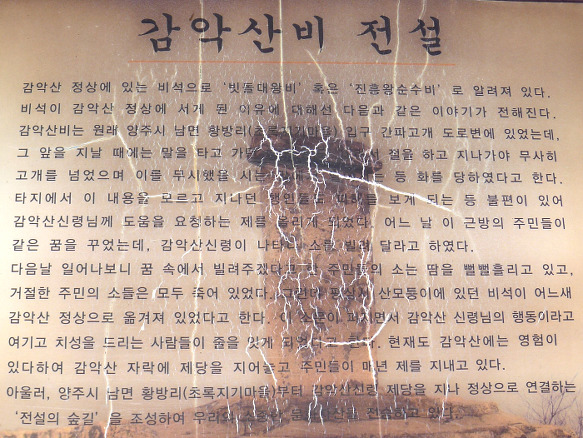 감악산비 전설
감악산 정상에 있는 비석으로 '빗돌대왕비' 혹은 '진흥왕순수비' 로 알려져 있다.
비석이 감악산 정상에 서게 된 이유에 대해선 다음과 같은 이야기가 전해진다.
감악산비는 원래 양주시 남면 황방리(초록지기마을) 입구 간파고개 도로변에 있었는데,
그 앞을 지날 때에는 말을 타고 절을 하고 지나가야 무사히
고개를 넘었으며 이를 무시했을 시는 등 화를 당하였다고 한다.
타지에서 이 내용을 모르고 지나던 행인들도 피해를 보게 되는 등 불편이 있어
감악산신령님께 도움을 요청하는 제를 올리게 되었다. 어느 날 이 근방의 주민들이
같은 꿈을 꾸었는데, 감악산신령이 나타나 소를 빌려 달라고 하였다.
다음날 일어나보니 꿈 속에서 빌려주겠다고 한 주민들의 소는 땀을 뻘뻘흘리고 있고,
거절한 주민의 소들은 모두 죽어 있었다. 그런데 산모퉁이에 있던 비석이 어느새
감악산 정상으로 옮겨져 있었다고 한다. 이 소문이 퍼지면서 감악산 신령님의 행동이라고
여기고 치성을 드리는 사람들이 줄을 잇게 되었다고 한다. 현재도 감악산에는 영험이
있다하여 감악산 자락에 제당을 지어놓고 주민들이 매년 제를 지내고 있다.
아울러, 양주시 남면 황방리(초록지기마을)부터 감악산신령 제당을 지나 정상으로 연결하는
'전설의 숲길' 을 조성하여 있다.